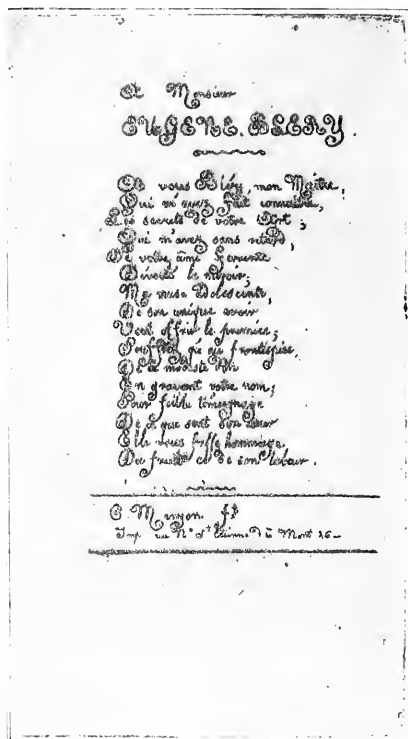 A Monsieur
EUGENE. BLERY.
A vous Bléry, mon Maître,
Qui m'avez fait connaître,
Les secrets de votre Art;
Qui m'avez sans retard,
De votre âme fervente
Dévoilé le miroir,
Ma muse Adolescente,
De son unique avoir
Veut offrir le premier;
Souffrez frontispice,
De ce modeste Don
En gravant votre nom;
Pour faible témoignage
De ce que sent Son cœur
Elle vous fasse hommage
de son labeur.
C. Meryon ft
Imp rue Nve St Etienne Du Mont 26_